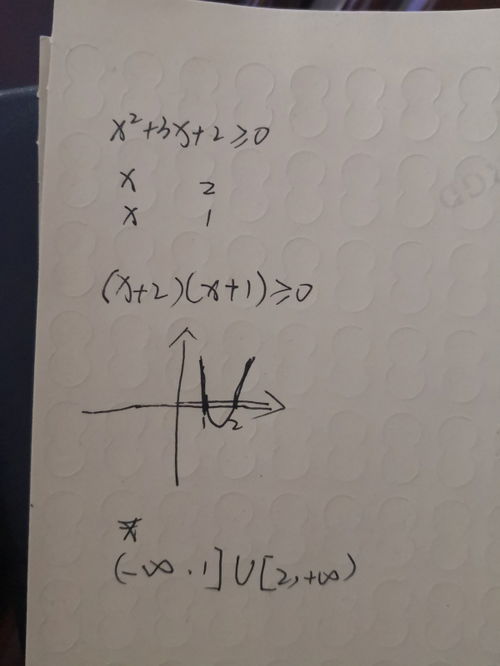 x²+3x+2≥0
x 2
x 1
(x+2)(x+1)≥0
1 2
x
(-∞.1]∪[2,+∞)